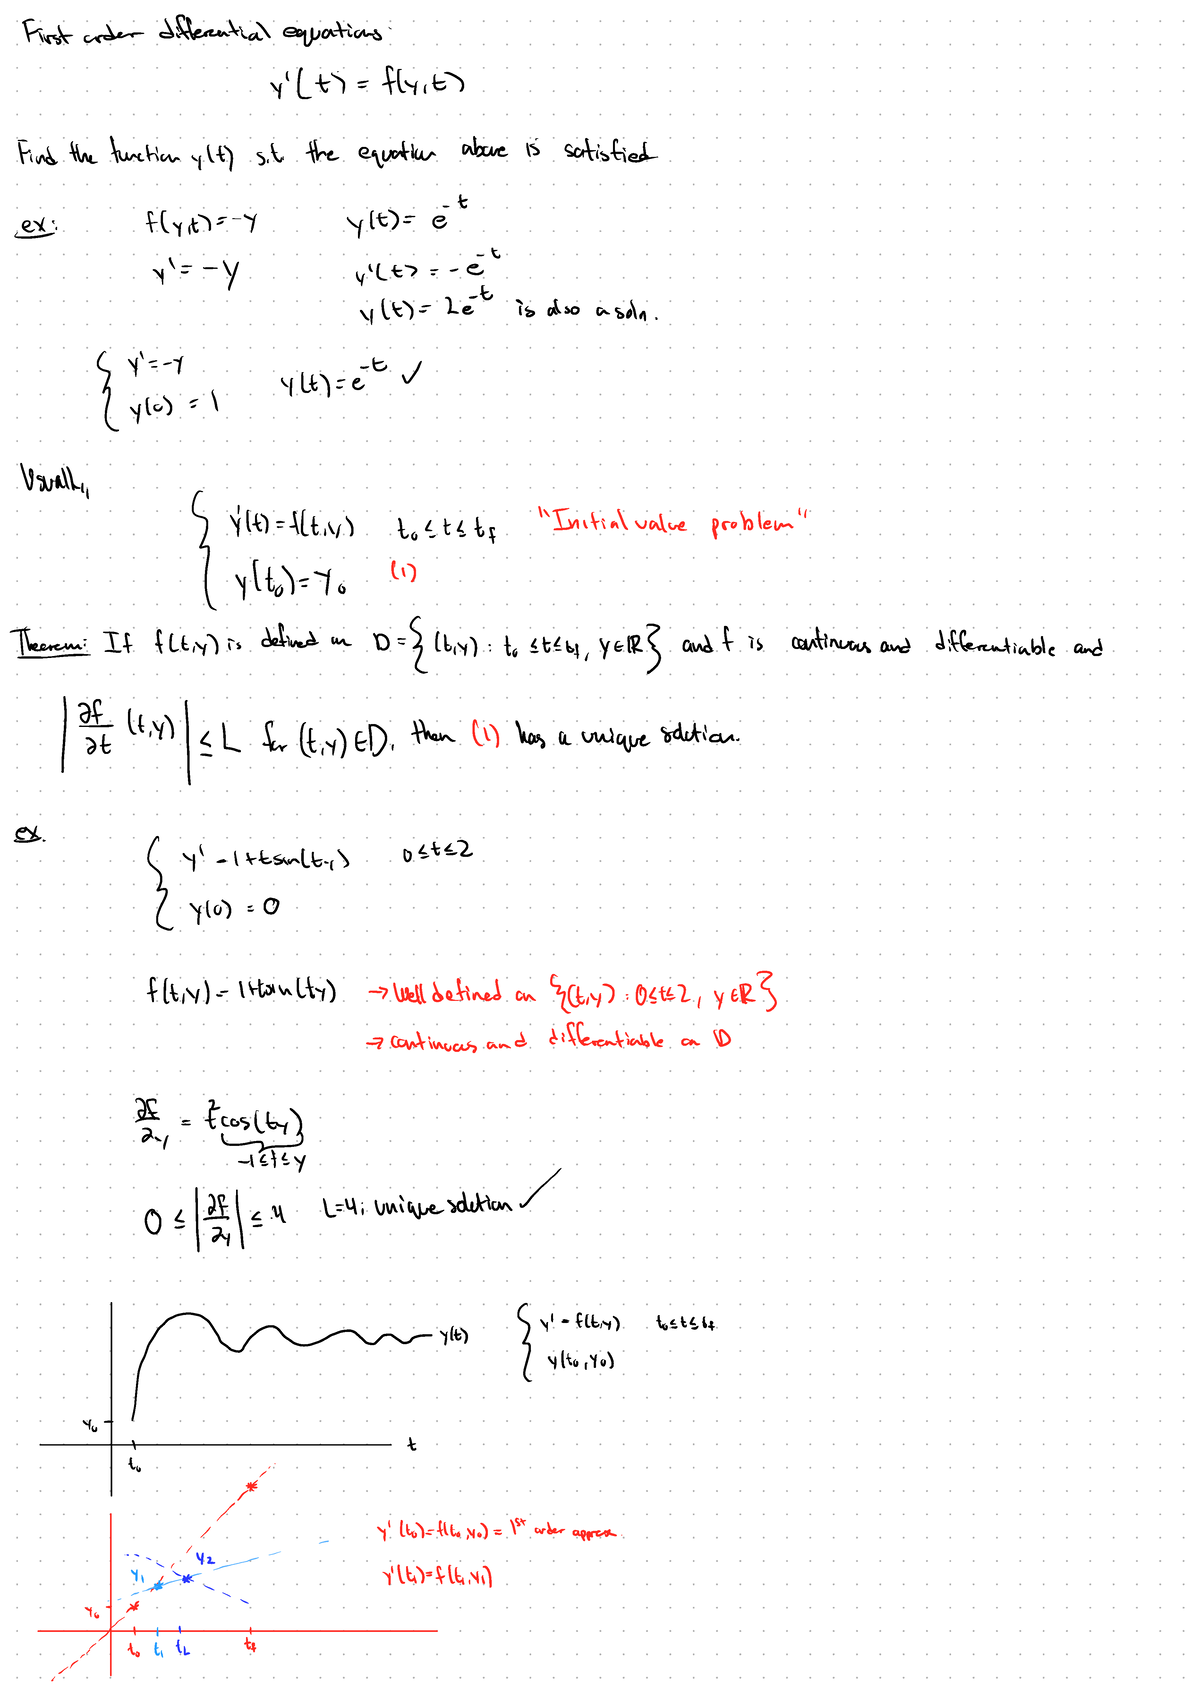 First order differential equations
y'(t) = f(y,t)
Find the function y(t) s.t. the equation above is satisfied
ex: f(y,t) = -y y(t) = e^{-t}
y' = -y y'(t) = -e^{-t}
y(t) = 2e^{-t} is also a soln.
{ y' = -y
y(0) = 1 y(t) = e^{-t} ✓
Usually,
{ y'(t) = f(t,y) t₀ ≤ t ≤ t_f "Initial value problem"
y(t₀) = y₀ (1)
Theorem: If f(t,y) is defined on D = {(t,y) : t₀ ≤ t ≤ t_f, y ∈ ℝ} and f is continuous and differentiable and
|∂f/∂t (t,y)| ≤ L for (t,y) ∈ D, then (1) has a unique solution.
ex.
{ y' = 1 + t sin(ty) 0 ≤ t ≤ 2
y(0) = 0
f(t,y) = 1 + t sin(ty) → Well defined on {(t,y) : 0 ≤ t ≤ 2, y ∈ ℝ}
→ continuous and differentiable on D
∂f/∂y = t² cos(ty)
-1 ≤ t ≤ y
0 ≤ |∂f/∂y| ≤ 4 L=4; unique solution ✓
y(t) { y' = f(t,y) t₀ ≤ t ≤ t_f
y(t₀, y₀)
y₀
t
t₀
y'(t₀) = f(t₀, y₀) = 1st order approx.
y₂
y₁ y'(t₁) = f(t₁, y₁)
y₀
t₀ t₁ t₂ t_f